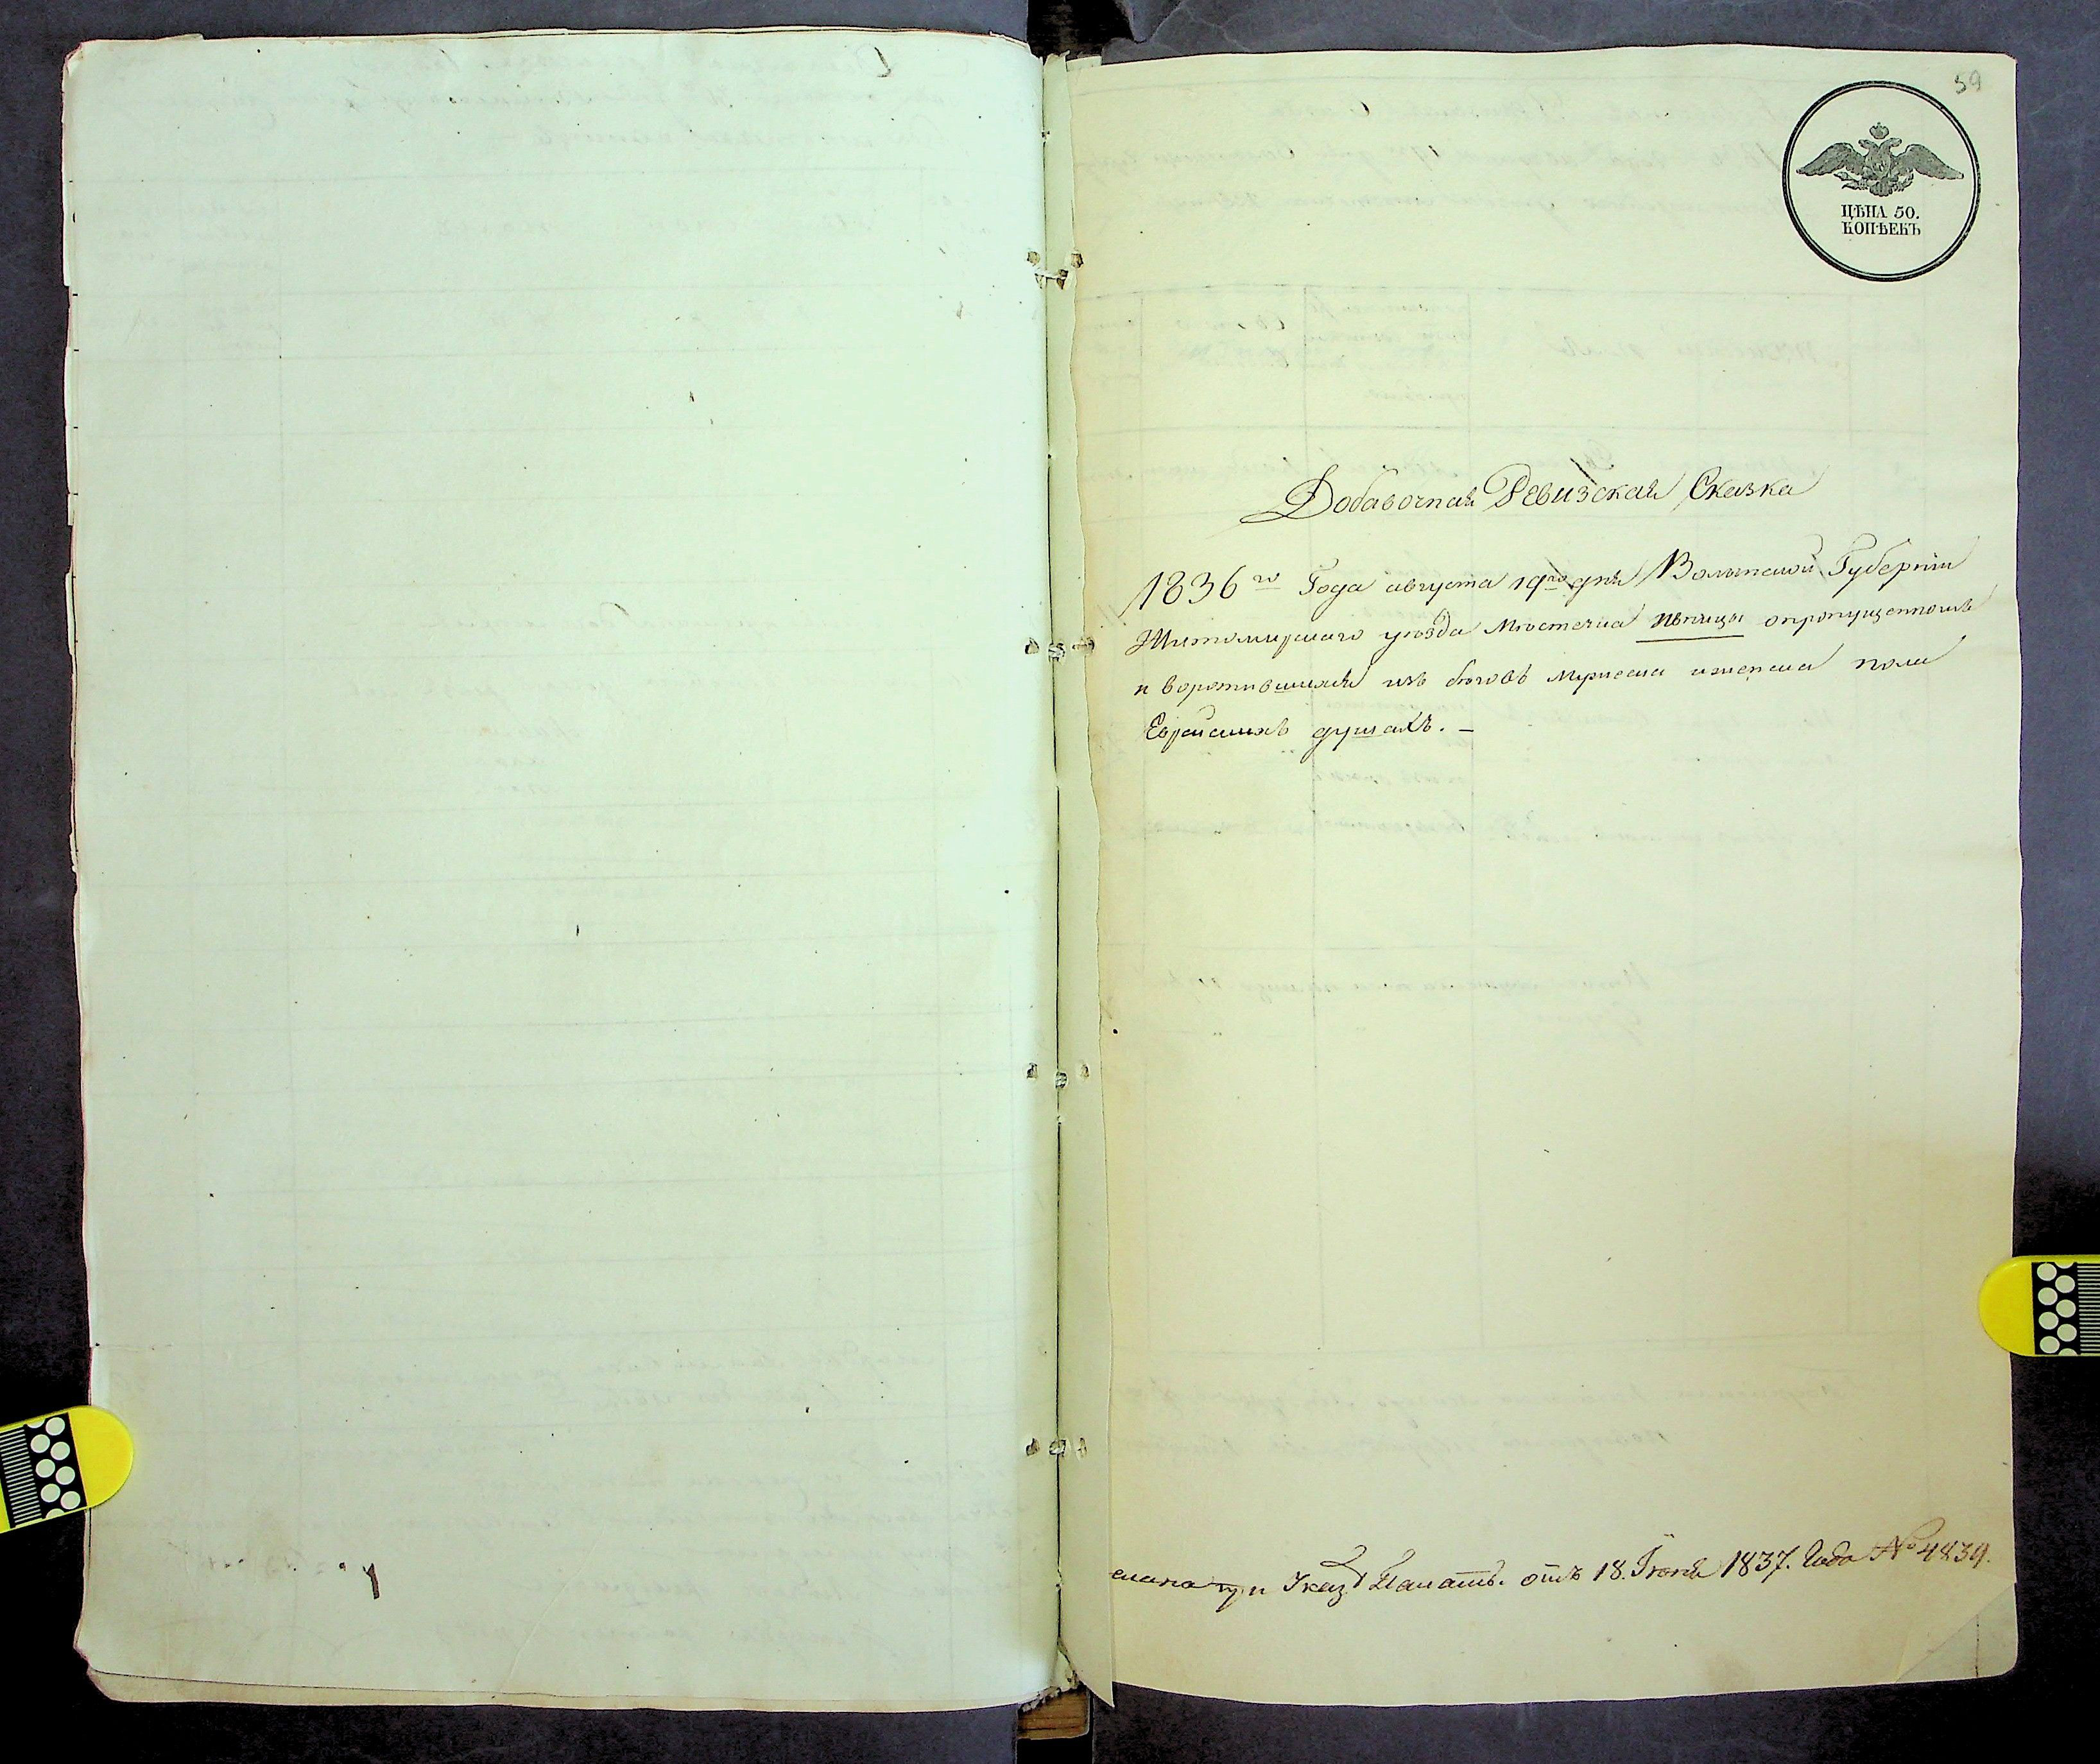 59
ЦѢНА 50.
КОПѢЕКЪ
Добавочная Ревизская Сказка
1836го Года августа 19го дня Волынской Губернiи
Житомирскаго уѣзда Мѣстечка Ивницы опропущенныхъ
и воротившихся изъ бѣговъ Мужеска иженска пола
Еврейскихъ душахъ. –
слана при Указѣ Палаты. отъ 18. Iюня 1837. Года № 4839.